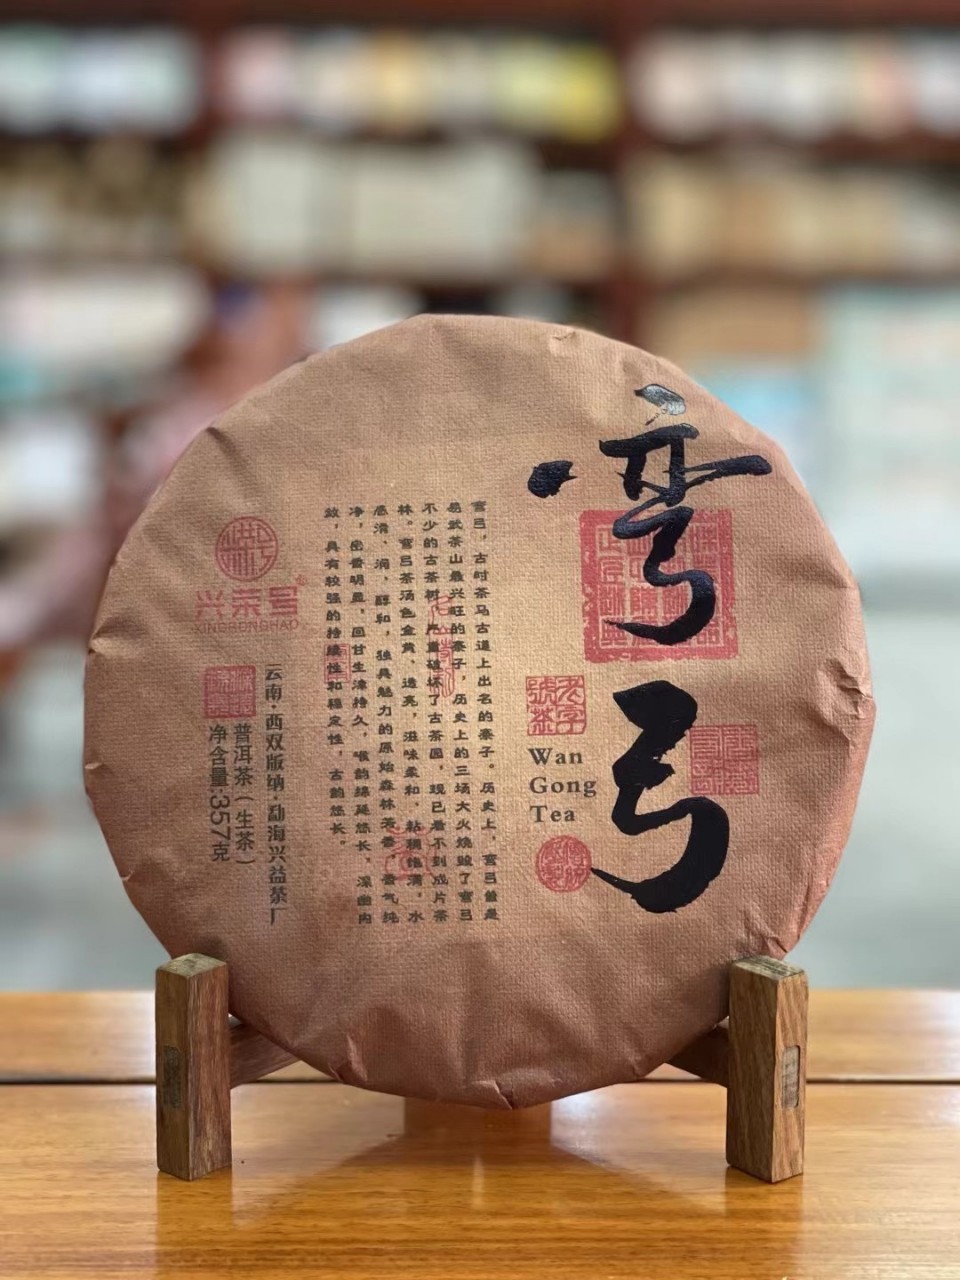 弯弓
老字
號茶
Wan
Gong
Tea
弯弓，古时茶马古道上出名的寨子。历史上，弯弓曾是
易武茶山最兴旺的寨子，历史上的三场大火烧毁了弯弓
不少的古茶树，严重破坏了古茶园，现已看不到成片茶
林。弯弓茶汤色金黄、透亮，滋味柔和、粘稠饱满，水
感滑、润，醇和，独具魅力的原始森林芳香，香气纯
净，密香明显，回甘生津持久，喉韵绵延悠长，深幽内
敛，具有较强的持续性和稳定性，古韵悠长。
兴荣号
XINGRONGHAO
云南·西双版纳·勐海兴益茶厂
普洱茶（生茶）
净含量:357克